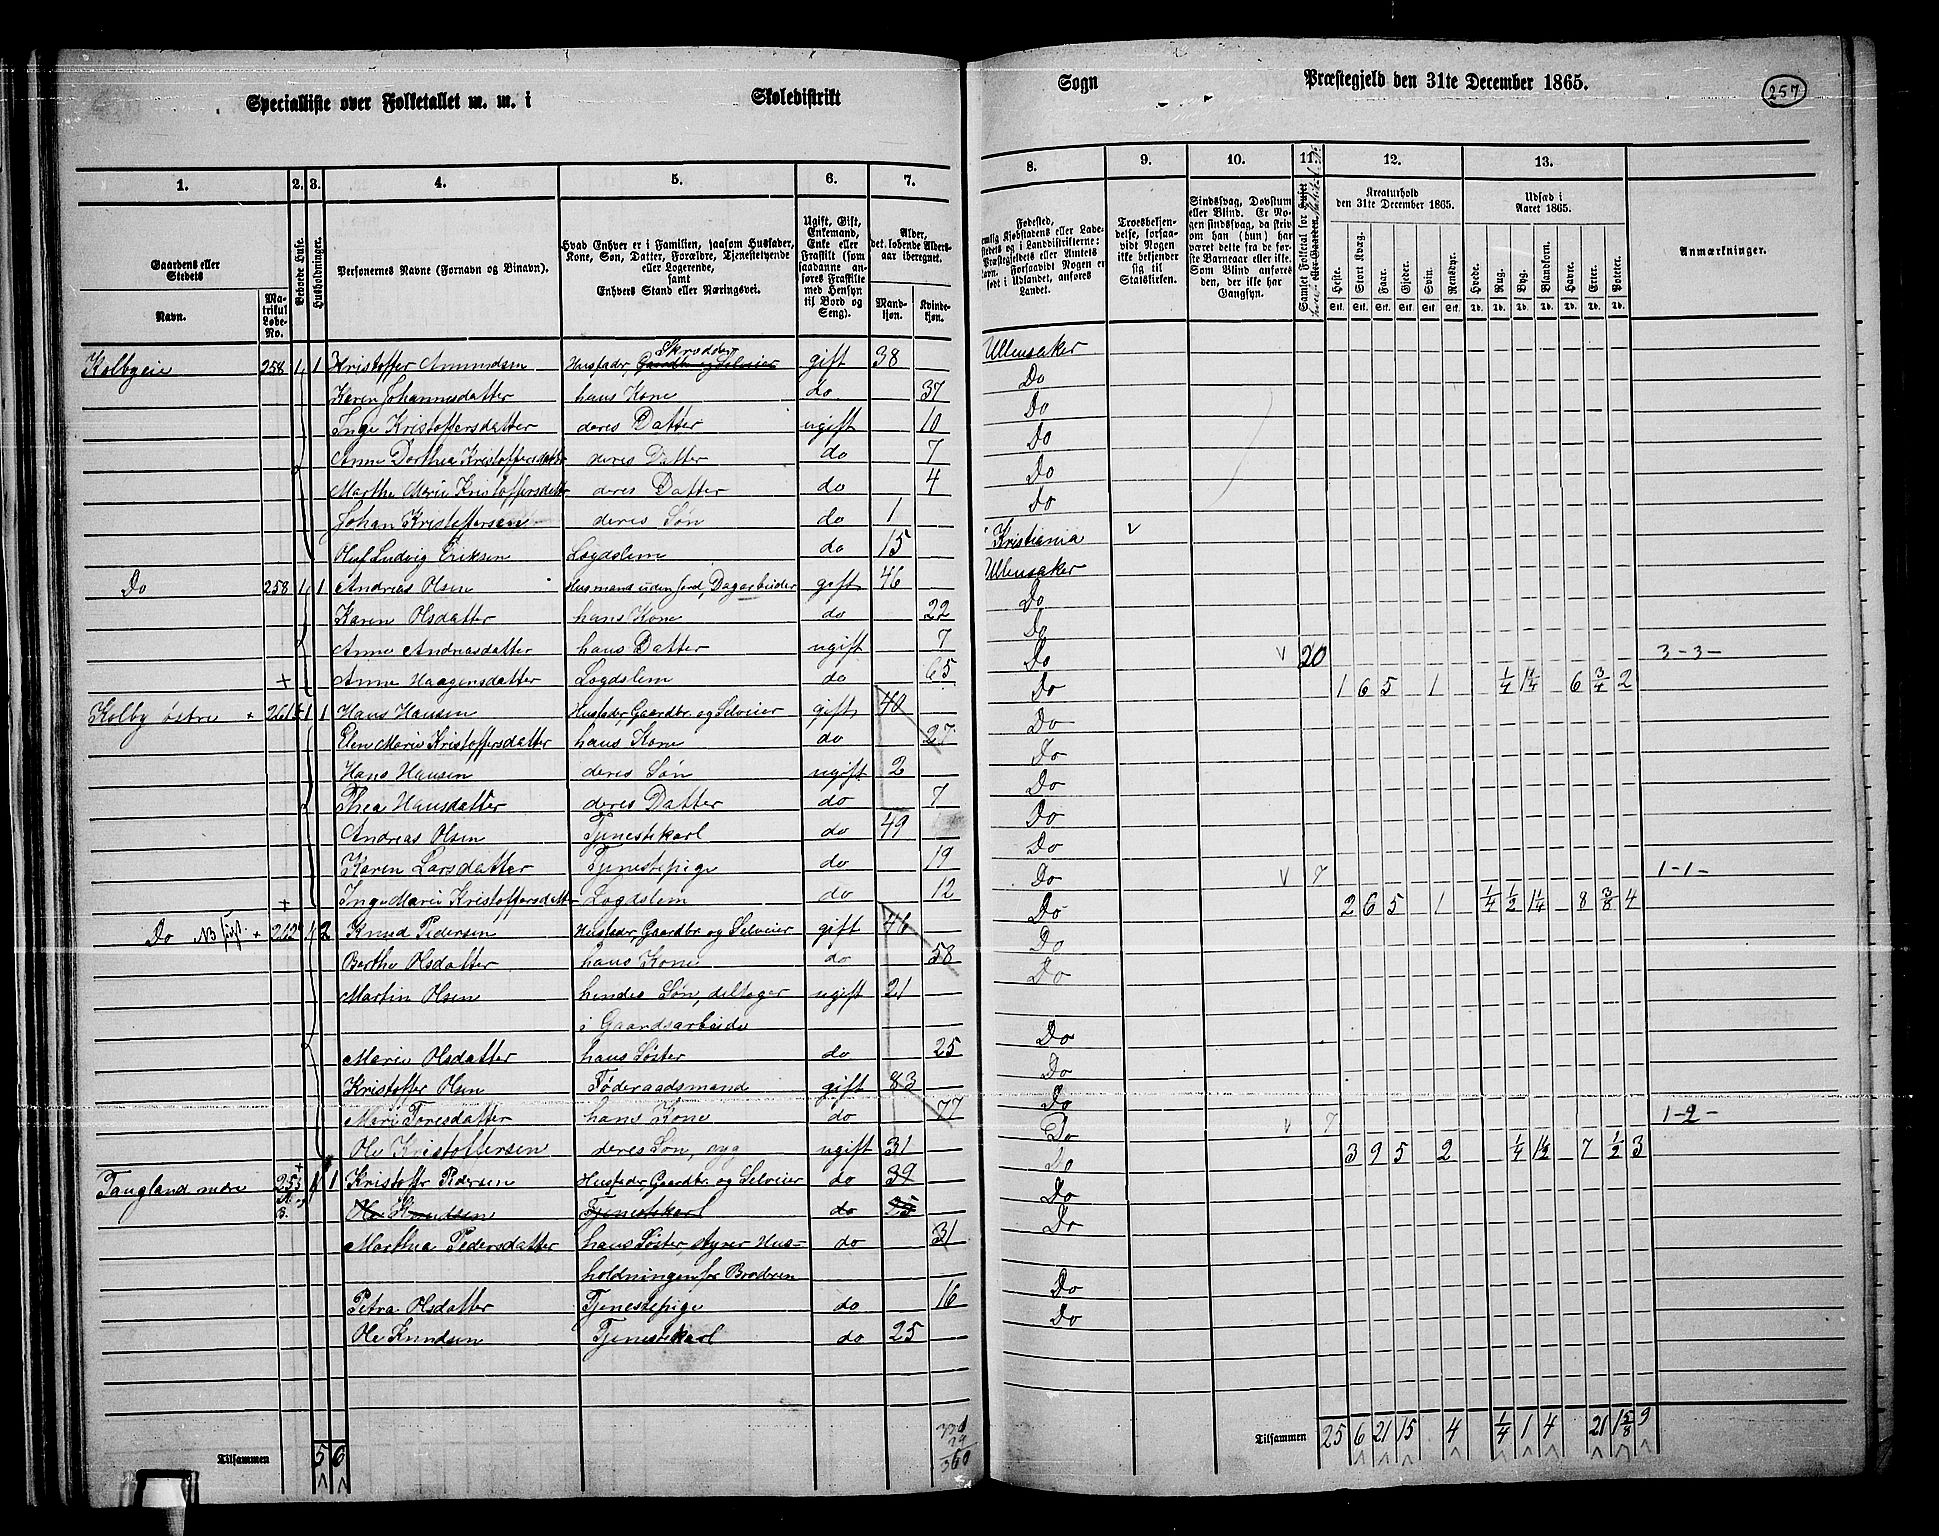 Specialliste over Folketallet m. m. i Skoledistrikt Sogn Præstegjeld den 31te December 1865. 257
1. 2. 3. 4. 5. 6. 7. 8. 9. 10. 11. 12. 13.
Gaardens eller Stedets
Navn.
Matrikul Løbe-No.
Beboede Huse.
Husholdninger.
Personernes Navne (Fornavn og Binavn).
Hvad Enhver er i Familien, saasom Husfader, Kone, Søn, Datter, Forældre, Tjenestetyende eller Logerende,
samt
Enhvers Stand eller Næringsvei.
Ugift, Gift, Enkemand, Enke eller Fraskilt (som saadanne anføres Fraskilte med Hensyn til Bord og Seng).
Alder, det løbende Aldersaar iberegnet.
Mandkjøn. Kvindekjøn.
Fødested,
Troesbekjendelse, forsaavidt Nogen ikke bekjender sig til Statskirken.
Sindssvag, Døvstum eller Blind. Er Nogen sindssvag, da skrives om han (hun) har været dette fra de første Barneaar eller ikke. Som Blind anføres den, der ikke har Gangsyn.
Kreaturhold den 31te December 1865.
Heste. Stort Kvæg. Faar. Gjeder. Svin. Rensdyr.
Udsæd i Aaret 1865.
Hvede. Rug. Byg. Blandkorn. Havre. Erter. Poteter.
Anmærkninger.
Kolbyeie 258 1 1 Kristoffer Amundsen Husfader, Gaardbr. og Selveier Skrædder gift 38 Ullensaker
Karen Johannesdatter hans Kone do 37 Do
Inge Kristoffersdatter deres Datter ugift 10 Do
Anne Dorthea Kristoffersdatter deres Datter do 7 Do
Marthe Marie Kristoffersdatter deres Datter do 4 Do
Johan Kristoffersen deres Søn do 1 Do
Oluf Ludvig Eriksen Logdslem do 15 Kristiania
Do 258 1 1 Andreas Olsen Husmand uden Jord, Dagarbeider gift 46 Ullensaker
Karen Olsdatter hans Kone do 22 Do
Anne Andreasdatter hans Datter ugift 7 Do
Anne Haagensdatter Logdslem do 65 Do 20 3-3-
Kolby østre 261 1 1 Hans Hansen Husfader, Gaardbr. og Selveier gift 40 Do 1 6 5 1 1/4 1 1/4 6 3/4 2
Elen Marie Kristoffersdatter hans Kone do 27 Do
Hans Hansen deres Søn ugift 2 Do
Thea Hansdatter deres Datter do 7 Do
Andreas Olsen Tjenestekarl do 49 Do
Karen Larsdatter Tjenestepige do 19 Do
Inge Marie Kristoffersdatter Logdslem do 12 Do 7 1-1-
Do 262 2 Knud Pedersen Husfader, Gaardbr. og Selveier gift 46 Do 2 6 5 1 1/4 1/2 1 1/4 8 3/8 4
Berthe Olsdatter hans Kone do 58 Do
Martin Olsen hendes Søn, deltager ugift 21 Do
i Gaardsarbeide
Marie Olsdatter hans Søster do 25 Do
Kristoffer Olsen Føderaadsmand gift 83 Do
Mari Toresdatter hans Kone do 77 Do
Ole Kristoffersen deres Søn, syg ugift 31 Do 7 1-2-
Taugland mære 253 1 1 Kristoffer Pedersen Husfader, Gaardbr. og Selveier do 39 Do 3 9 5 2 1/4 1 1/2 7 1/2 3
Ole Knudsen Tjenestekarl do 25 Do
Marthea Pedersdatter hans Søster, styrer Hus- do 31 Do
holdningen for Broderen
Petra Olsdatter Tjenestepige do 16 Do
Ole Knudsen Tjenestekarl do 25 Do
Tilsammen 5 6 360
Tilsammen 25 6 21 15 4 1/4 1 4 21 1 5/8 9